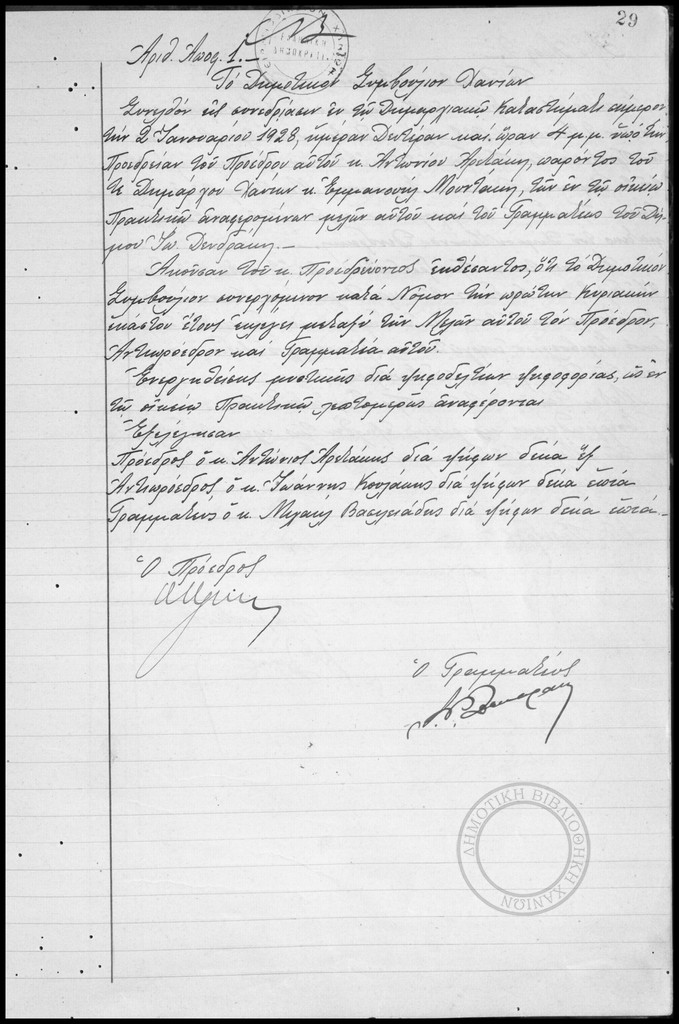 29
Ἀριθ. Ἀποφ. 1.-
Τό Δημοτικόν Συμβούλιον Χανίων
Συνελθόν εἰς συνεδρίασιν ἐν τῷ Δημαρχιακῷ Καταστήματι σήμερον
τήν 2 Ἰανουαρίου 1928, ἡμέραν Δευτέραν καί ὥραν 4 μ.μ. ὑπό τήν
Προεδρείαν τοῦ Προέδρου αὐτοῦ κ. Ἀντωνίου Ἀρετάκη, παρόντος τοῦ
κ. Δημάρχου Χανίων κ. Ἐμμανουήλ Μουντάκη, τῶν ἐν τῷ οἰκείῳ
Πρακτικῷ ἀναφερομένων μελῶν αὐτοῦ καί τοῦ Γραμματέως τοῦ Δή-
μου Ἰω. Δενδράκη.-
Ἀκοῦσαν τοῦ κ. Προεδρεύοντος ἐκθέσαντος, ὅτι τό Δημοτικόν
Συμβούλιον συνερχόμενον κατά Νόμον τήν πρώτην Κυριακήν
ἑκάστου ἔτους ἐκλέγει μεταξύ τῶν Μελῶν αὐτοῦ τόν Πρόεδρον,
Ἀντιπρόεδρον καί Γραμματέα αὐτοῦ.
Ἐνεργηθείσης μυστικῆς διά ψηφοδελτίων ψηφοφορίας, ὡς ἐν
τῷ οἰκείῳ Πρακτικῷ λεπτομερῶς ἀναφέρονται
Ἐξελέγησαν
Πρόεδρος ὁ κ. Ἀντώνιος Ἀρετάκης διά ψήφων δέκα ἕξ
Ἀντιπρόεδρος ὁ κ. Ἰωάννης διά ψήφων δέκα ἑπτά
Γραμματεύς ὁ κ. Μιχαήλ Βασιλειάδης διά ψήφων δέκα ἑπτά.-
Ὁ Πρόεδρος
Ὁ Γραμματεύς
ΔΗΜΟΤΙΚΗ ΒΙΒΛΙΟΘΗΚΗ ΧΑΝΙΩΝ